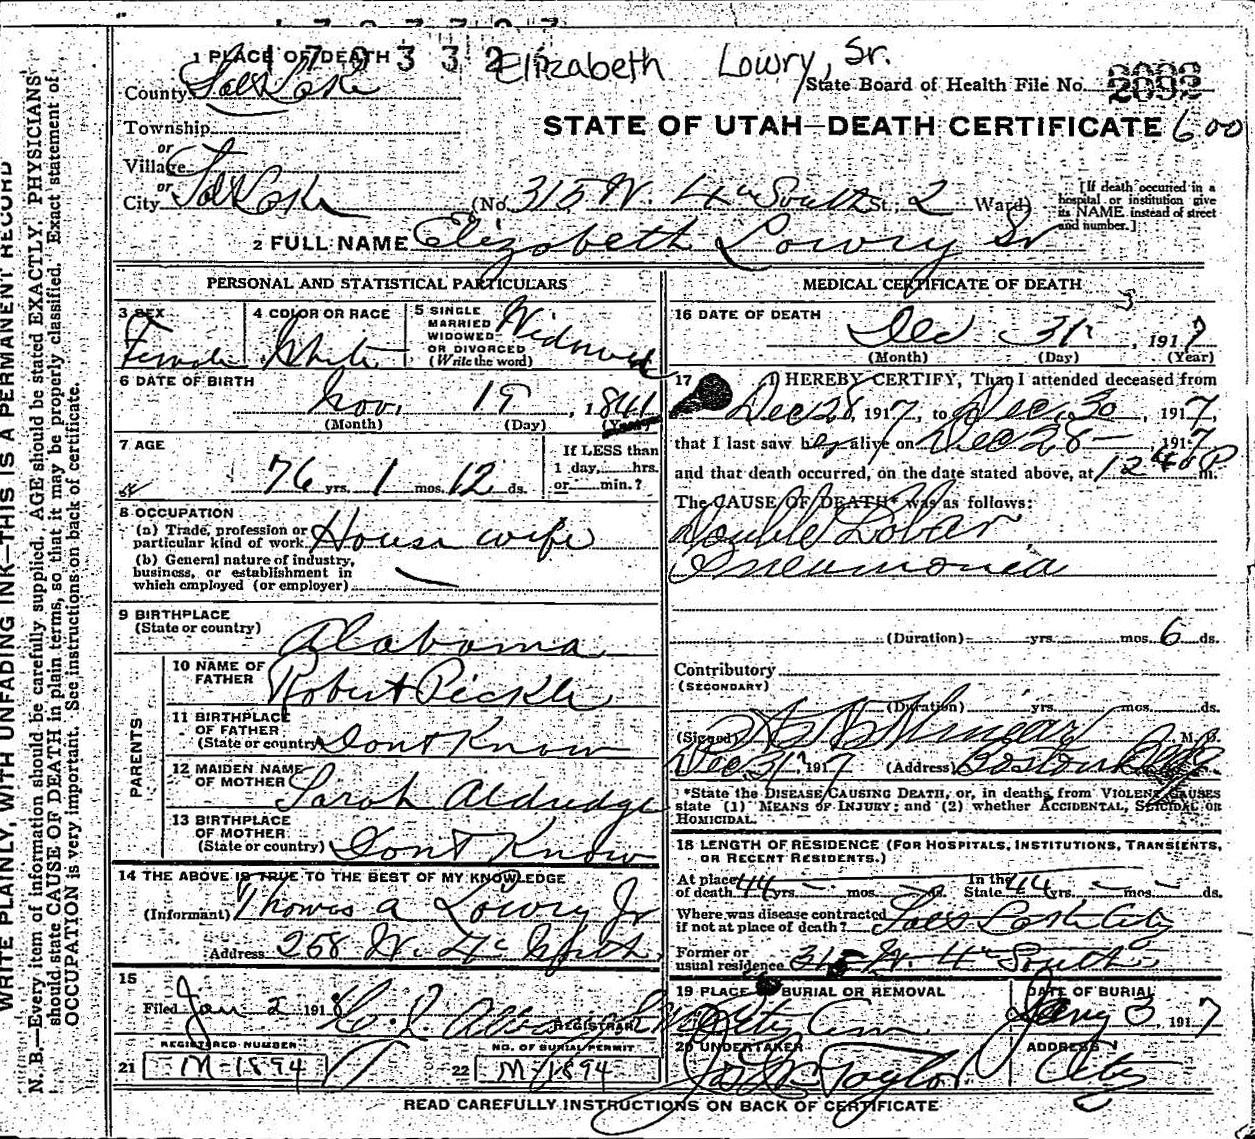 1 7 0 3 3 2 Elizabeth Lowry, Sr.
1 PLACE OF DEATH
County Salt Lake
State Board of Health File No. 2092
Township
or
Village
or
City Salt Lake
STATE OF UTAH—DEATH CERTIFICATE 600
(No 315 W. 4th South St. 2 Ward)
[If death occurred in a hospital or institution give its NAME instead of street and number.]
2 FULL NAME Elizabeth Lowry Sr
PERSONAL AND STATISTICAL PARTICULARS
3 SEX
Female
4 COLOR OR RACE
White
5 SINGLE
MARRIED
WIDOWED
OR DIVORCED
(Write the word)
Widowed
6 DATE OF BIRTH
Nov. 19, 1841
(Month) (Day) (Year)
7 AGE
76 yrs. 1 mos. 12 ds.
If LESS than
1 day, hrs.
or min.?
8 OCCUPATION
(a) Trade, profession or
particular kind of work House wife
(b) General nature of industry,
business, or establishment in
which employed (or employer)
9 BIRTHPLACE
(State or country) Alabama
PARENTS
10 NAME OF
FATHER Robert Pickle
11 BIRTHPLACE
OF FATHER
(State or country) Dont Know
12 MAIDEN NAME
OF MOTHER Sarah Aldredge
13 BIRTHPLACE
OF MOTHER
(State or country) Dont Know
14 THE ABOVE IS TRUE TO THE BEST OF MY KNOWLEDGE
(Informant) Thomas A Lowry Jr
Address 268 W. 4th
15
Filed Jan 2 1918
REGISTRAR
REGISTERED NUMBER
21 M-1894
NO. OF BURIAL PERMIT
22 M-1894
MEDICAL CERTIFICATE OF DEATH
3
16 DATE OF DEATH
Dec 31, 1917
(Month) (Day) (Year)
17 I HEREBY CERTIFY, That I attended deceased from
Dec 28, 1917, to Dec. 30, 1917,
that I last saw her alive on Dec 28 — 1917
and that death occurred, on the date stated above, at 12 40 P m.
The CAUSE OF DEATH* was as follows:
Double Lobar
Pneumonia
(Duration) yrs. mos. 6 ds.
Contributory
(SECONDARY)
(Duration) yrs. mos. ds.
(Signed) M. D.
Dec 31, 1917 (Address) Boston Bldg
*State the DISEASE CAUSING DEATH, or, in deaths from VIOLENT CAUSES
state (1) MEANS OF INJURY; and (2) whether ACCIDENTAL, SUICIDAL OR
HOMICIDAL.
18 LENGTH OF RESIDENCE (FOR HOSPITALS, INSTITUTIONS, TRANSIENTS,
OR RECENT RESIDENTS.)
At place
of death 44 yrs. - mos. - ds. In the
State 44 yrs. - mos. - ds.
Where was disease contracted
if not at place of death? Salt Lake City
Former or
usual residence 315 W. 4th South
19 PLACE OF BURIAL OR REMOVAL
City Cem
DATE OF BURIAL
Jany 3, 1917
20 UNDERTAKER
Taylor
ADDRESS
City
READ CAREFULLY INSTRUCTIONS ON BACK OF CERTIFICATE
WRITE PLAINLY, WITH UNFADING INK—THIS IS A PERMANENT RECORD
N. B.—Every item of information should be carefully supplied. AGE should be stated EXACTLY. PHYSICIANS
should state CAUSE OF DEATH in plain terms, so that it may be properly classified. Exact statement of
OCCUPATION is very important. See instructions on back of certificate.